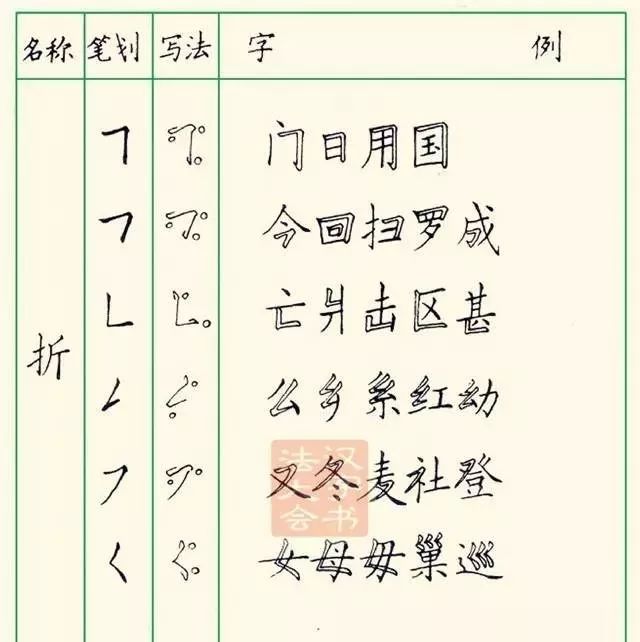 名称 笔划 写法 字 例
折
门日用国
今回扫罗成
亡爿击区甚
么乡系红幼
又冬麦社登
女母毋巢巡
汉字书
法大会